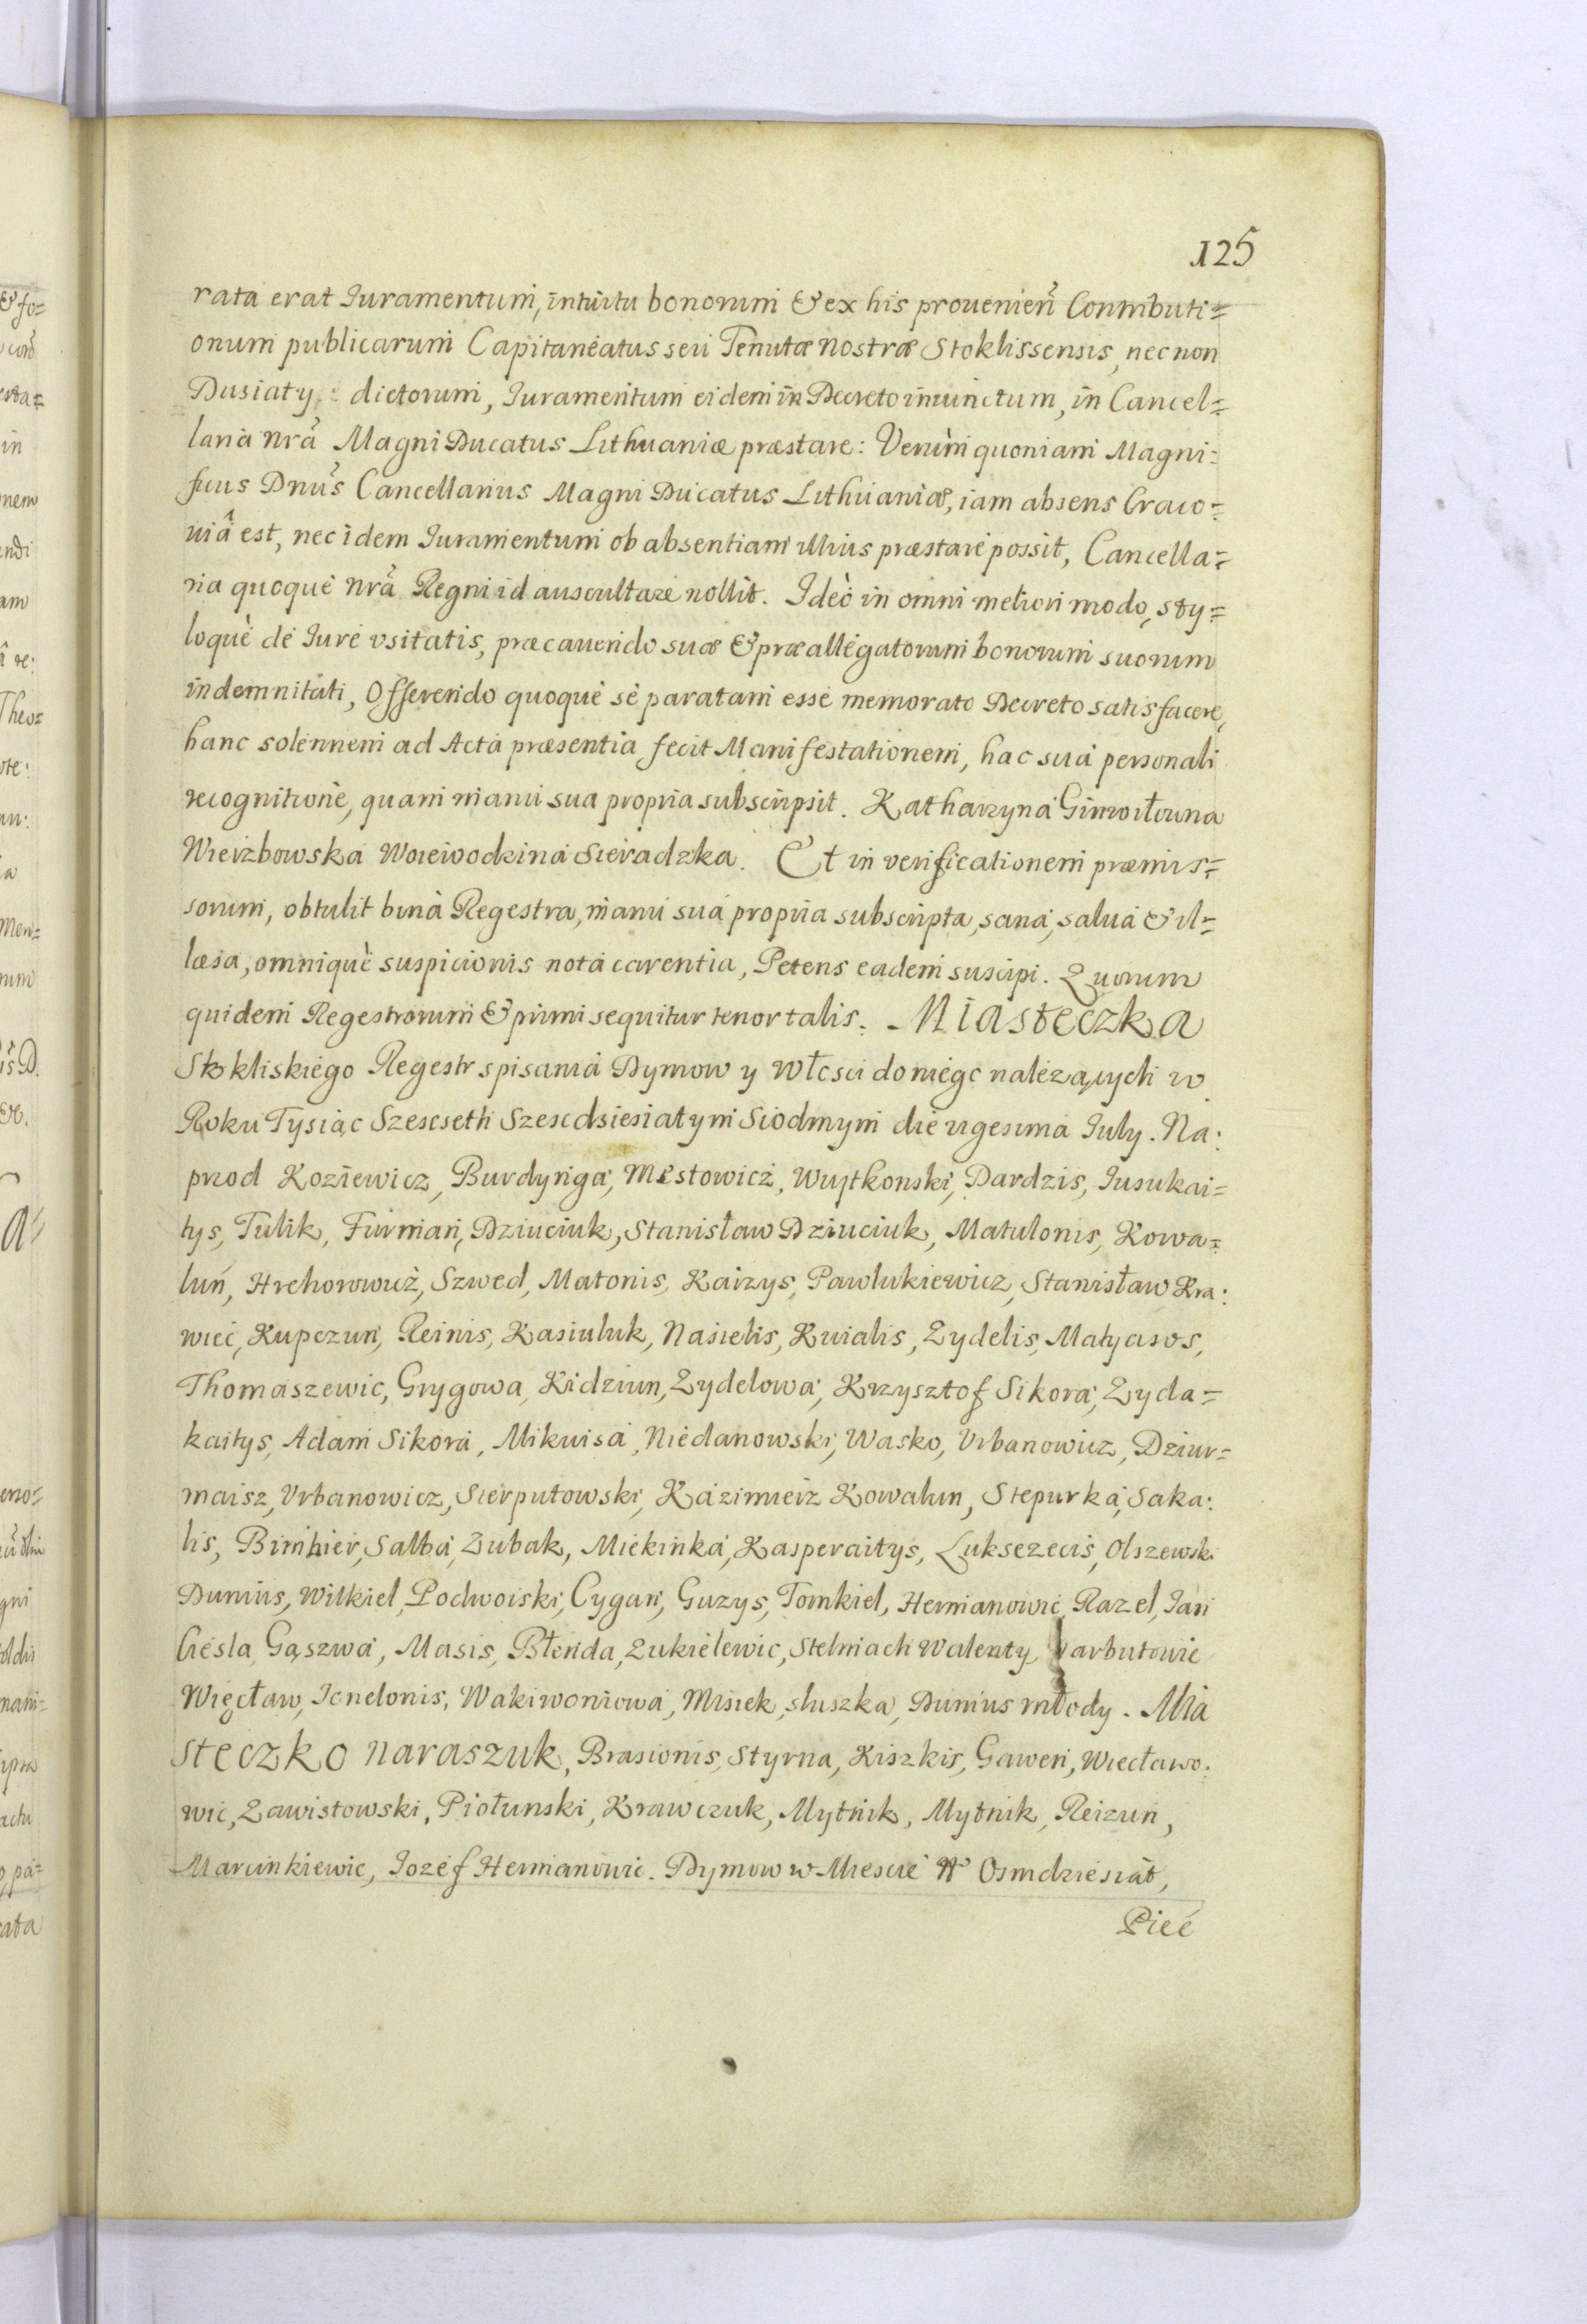 125
rata erat Iuramentum, intuitu bonorum & ex his prouenien̄ Contributi=
onum publicarum Capitaneatus seu Tenutæ nostræ Stoklissensis, nec non
Dusiaty dictorum, Iuramentum eidem in Decreto iniunctum, in Cancel=
laria nrã Magni Ducatus Lithuaniæ præstare: Verùm quoniam Magni=
ficus Dnũs Cancellarius Magni Ducatus Lithuaniæ, iam absens Craco=
uiâ est, nec idem Iuramentum ob absentiam illius præstare possit, Cancella=
ria quoque nrã Regni id auscultare nollit. Ideò in omni meliori modo, sty=
loquè de Iure vsitatis, præcauendo suæ & præallegatorum bonorum suorum
indemnitati, Offerendo quoque se paratam esse memorato Decreto satisfacere,
hanc solennem ad Acta præsentia fecit Manifestationem, hac sua personali
recognitione, quam manu sua propria subscripsit. Katharzyna Gimoiłowna
Wierzbowska Woiewodzina Sieradzka. Et in verificationem præmis=
sorum, obtulit bina Regestra, manu sua propria subscripta, sana, salua & il=
læsa, omniquè suspicionis nota carentia, Petens eadem suscipi. Quorum
quidem Regestrorum & primi sequitur tenor talis. Miasteczka
Stokliskiego Regestr spisania Dymow y Włosci do niego należących w
Roku Tysiąc Szescseth Szescdsiesiatym Siodmym die vigesima July. Na:
przod Koziewicz, Burdynga, Mestowicz, Wuytkonski, Dardzis, Iusukai=
tys, Tulik, Furman, Dziuciuk, Stanisław Dziuciuk, Matulonis, Kowa=
luń, Hrehorowicz, Szwed, Matonis, Kairzys, Pawlukiewicz, Stanisław Kra:
wiec, Kupczun, Reinis, Kasiuluk, Nasielis, Kuialis, Zydelis, Matyasos,
Thomaszewic, Grygowa, Kidziun, Zydelowa, Krzysztof Sikora, Zyda=
kaitys, Adam Sikora, Mikuisa, Niedanowski, Wasko, Vrbanowicz, Dziur=
maisz, Vrbanowicz, Sierputowski, Kazimierz Kowalun, Stepurka, Saka:
lis, Birnhier, Salba, Zubak, Miekinka, Kasperaitys, Luksezecis, Olszewski
Dumus, Wilkiel, Podwoiski, Cygan, Guzys, Tomkiel, Hermanowic, Razel, Jan
Ciesla, Gąszwa, Masis, Błenda, Zukielewic, Stelmach Walenty Narbutowic
Więcław, Ionelonis, Wakiwoniowa, Misiek, sluszka, Dumus młody. Mia
steczko Naraszuk, Brasionis, Styrna, Kiszkis, Gawen, Wiecławo:
wic, Zawistowski, Piołunski, Krawczuk, Mytnik, Mytnik, Reizun,
Marcinkiewic, Iozef Hermanowic. Dymow w Miescie No Osmdziesiąt,
Pieć